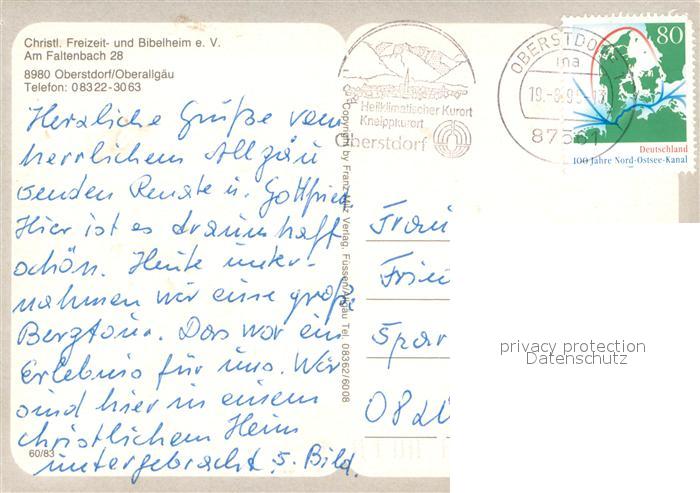 Christl. Freizeit- und Bibelheim e. V.
Am Faltenbach 28
8980 Oberstdorf/Oberallgäu
Telefon: 08322-3063
Herzliche Grüße vom
herrlichen Allgäu
senden Renate u. Gottfried.
Hier ist es traumhaft
schön. Heute unter-
nahmen wir eine große
Bergtour. Das war ein
Erlebnis für uns. Wir
sind hier in einem
christlichen Heim
untergebracht s. Bild.
60/83
Copyright by Franz Milz Verlag, Füssen/Allgäu Tel. 08362/6008
Heilklimatischer Kurort
Kneippkurort
Oberstdorf
OBERSTDORF
19.-8.95-17
87561
80
Deutschland
100 Jahre Nord-Ostsee-Kanal
Frau
Frie
Spar
privacy protection
Datenschutz